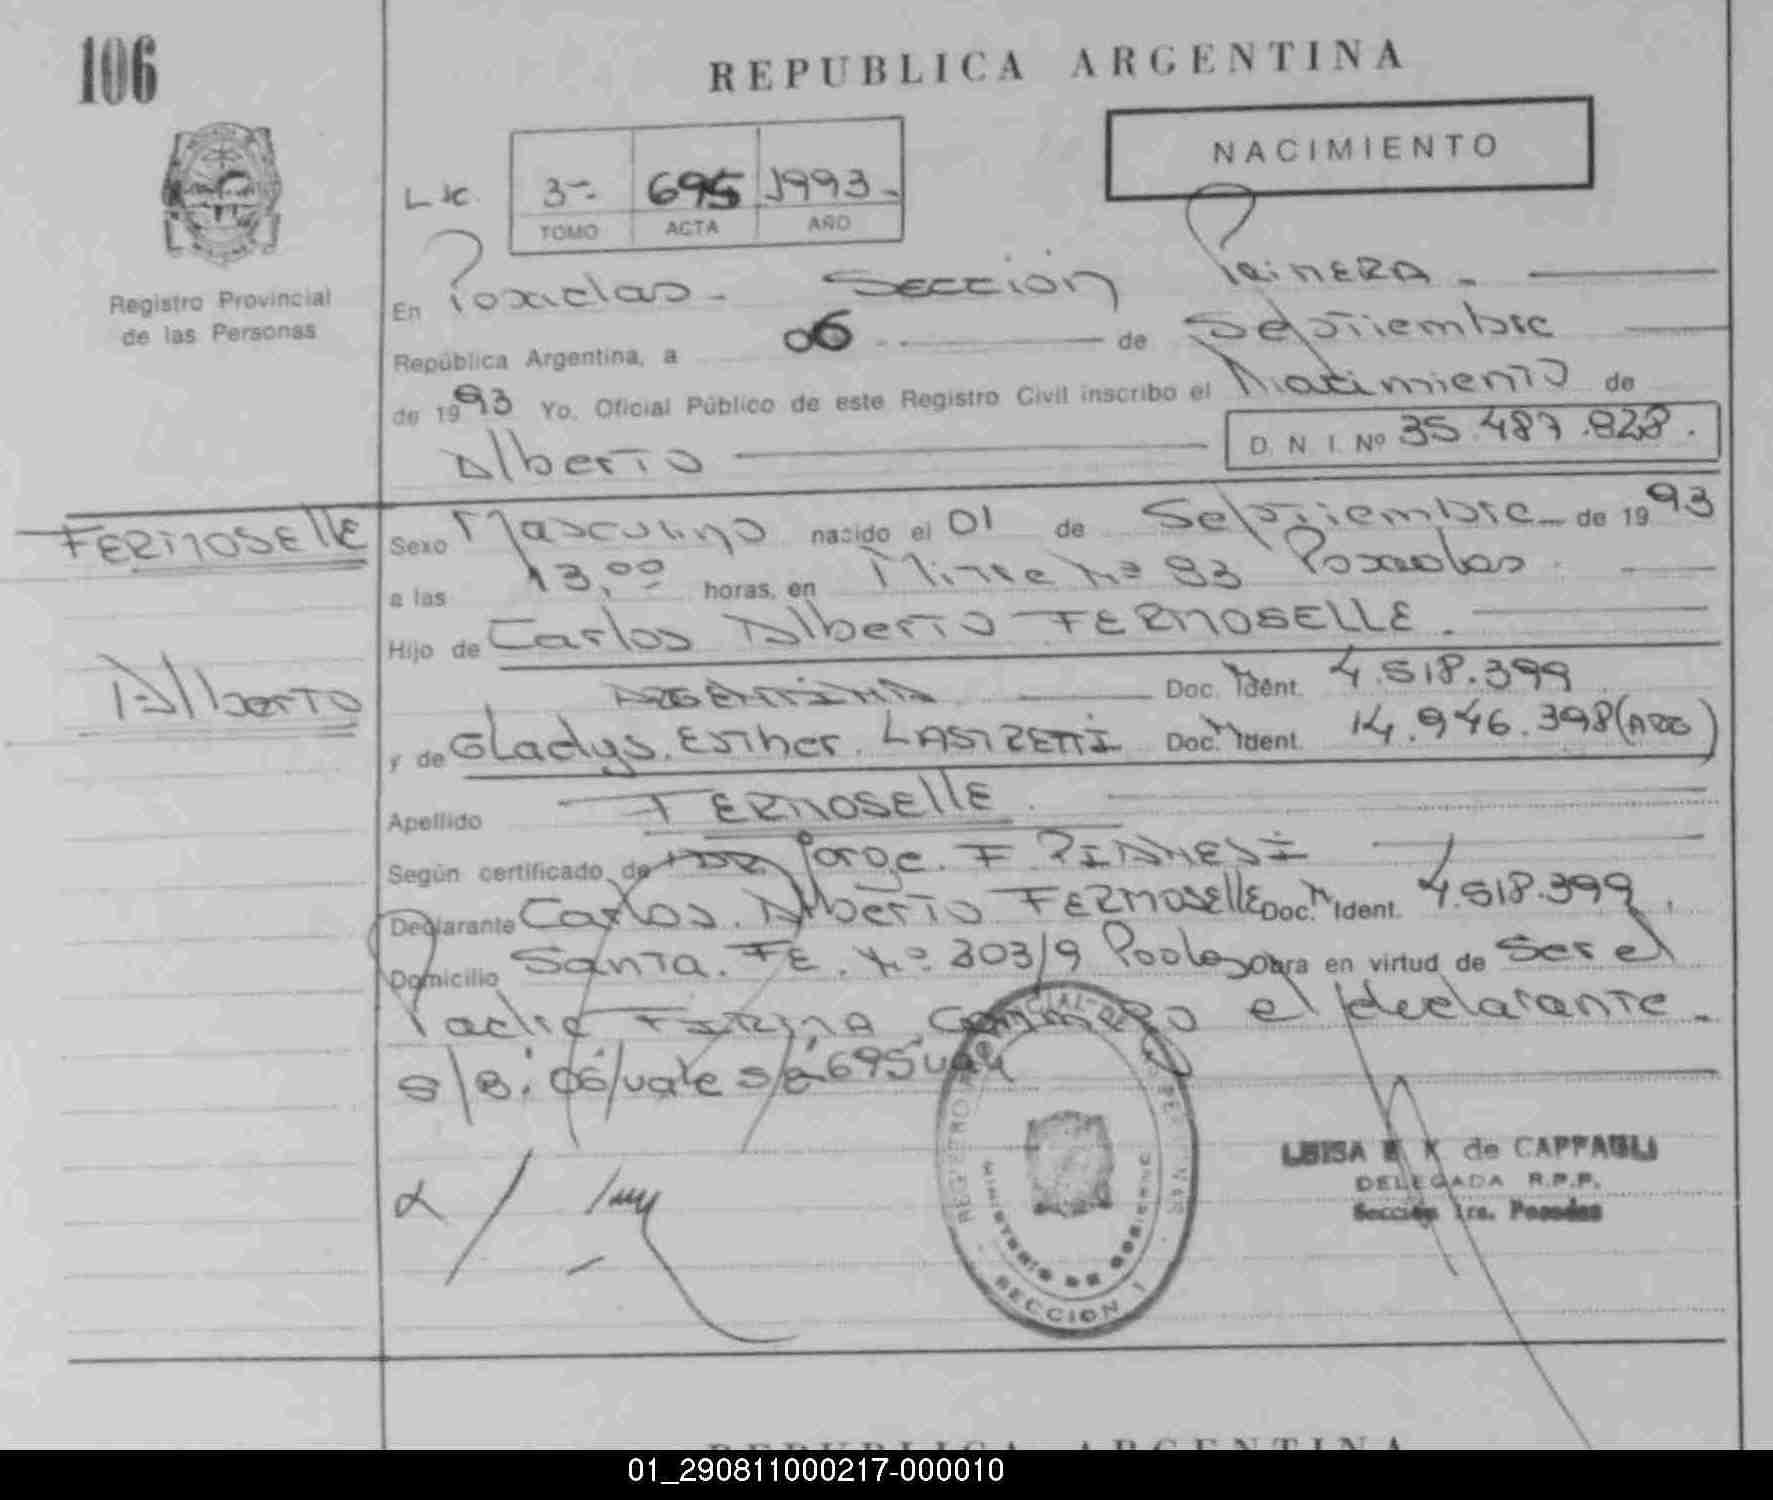 106
REPUBLICA ARGENTINA
NACIMIENTO
3 695 1993
TOMO ACTA AÑO
Registro Provincial
de las Personas
En Posadas - Sección Primera.
República Argentina, a 06 de Septiembre
de 1993 Yo, Oficial Público de este Registro Civil inscribo el Nacimiento de
Alberto D. N. I. Nº 35.487.828.
FERMOSELLE
Alberto
Sexo Masculino nacido el 01 de Septiembre de 1993
a las 13,00 horas, en Mitre Nº 93 Posadas
Hijo de Carlos Alberto FERMOSELLE.
ARGENTINA Doc. Ident. 4.518.399
y de Gladys. Esther. Doc. Ident. 14.946.398 (ARG)
Apellido FERMOSELLE
Según certificado de Jorge. F
Declarante Carlos. Alberto FERMOSELLE Doc. Ident. 4.518.399
Domicilio Santa. FE. Nº 303/9 obra en virtud de ser el
Padre FIRMA conmigo el declarante.
S/B: 06/vale 695
REGISTRO PROVINCIAL DE LAS PERSONAS
MINISTERIO DE GOBIERNO
SECCION 1
de CAPPAGLI
DELEGADA R.P.P.
Sección 1ra. Posadas
REPUBLICA ARGENTINA
01_290811000217-000010